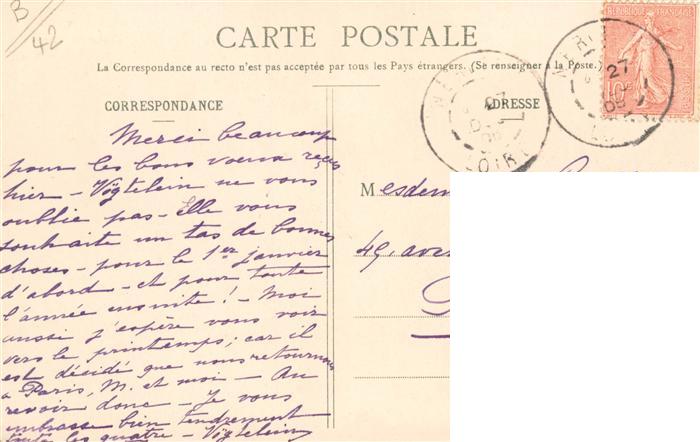 B
42
CARTE POSTALE
La Correspondance au recto n'est pas acceptée par tous les Pays étrangers. (Se renseigner à la Poste.)
CORRESPONDANCE
ADRESSE
RÉPUBLIQUE FRANÇAISE
10
27
27
LOIRE
Merci beaucoup
pour les bons voeux reçus
hier - Vögtelein ne vous
oublie pas - Elle vous
souhaite un tas de bonnes
choses - pour le 1er janvier
d'abord - et pour toute
l'année ensuite! - Moi
aussi j'espère vous voir
vers le printemps; car il
est décidé que nous retournons
à Paris, M. et moi - Au
revoir donc - Je vous
embrasse bien tendrement
toutes les quatre - Vögtelein
Mesdem
49, aven